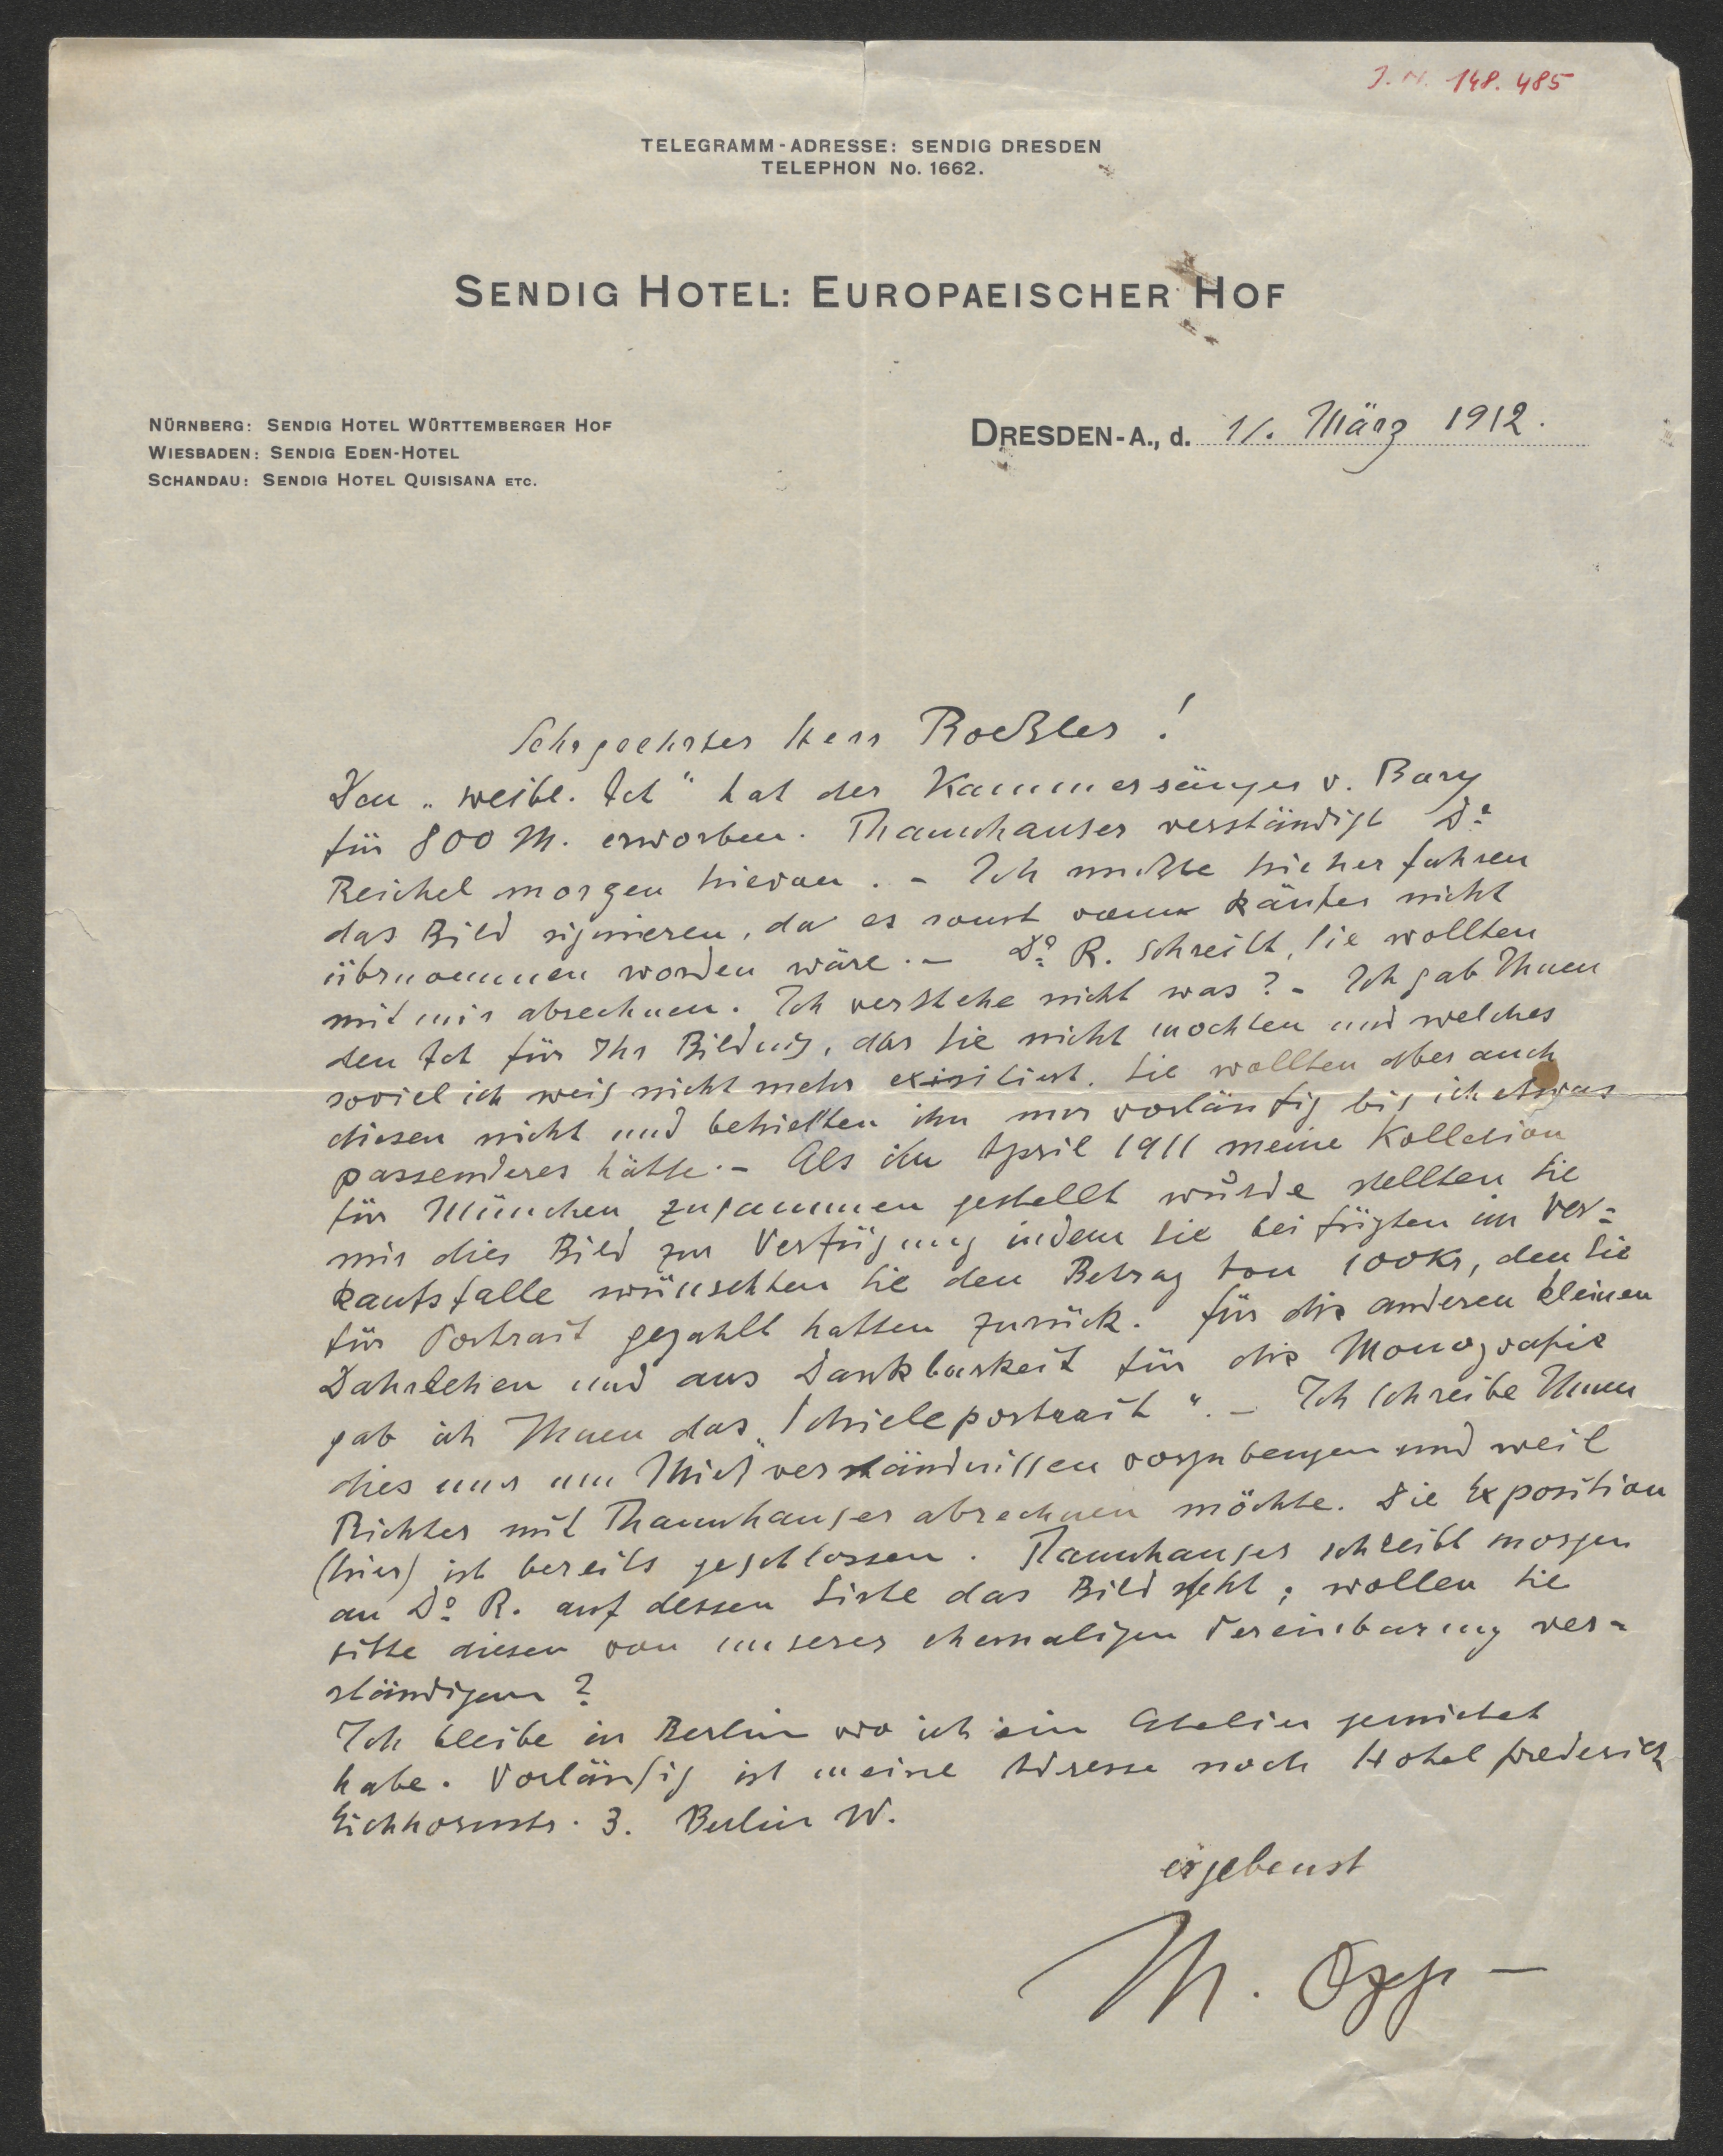 J. N. 148.485
TELEGRAMM-ADRESSE: SENDIG DRESDEN
TELEPHON No. 1662.
SENDIG HOTEL: EUROPAEISCHER HOF
NÜRNBERG: SENDIG HOTEL WÜRTTEMBERGER HOF
WIESBADEN: SENDIG EDEN-HOTEL
SCHANDAU: SENDIG HOTEL QUISISANA ETC.
DRESDEN-A., d. 11. März 1912.
Sehrgeehrter Herr Roeßler!
Den „weibl. Act" hat der Kammersänger v. Bary
für 800 M. erworben. Thannhauser verständigt Dr
Reichel morgen hievon. – Ich mußte hieher fahren
das Bild signieren, da es sonst vom Käufer nicht
übernommen worden wäre. – Dr R. schreibt, Sie wollten
mit mir abrechnen. Ich verstehe nicht was? – Ich gab Ihnen
den Act für Ihr Bildnis, das Sie nicht mochten und welches
soviel ich weis nicht mehr existiert. Sie wollten aber auch
diesen nicht und behielten ihn nur vorläufig bis ich etwas
passenderes hätte. – Als im April 1911 meine Kollection
für München zusammen gestellt wurde stellten Sie
mir dies Bild zur Verfügung indem Sie bei fügten im Ver=
kaufsfalle wünschten Sie den Betrag von 100Kr, den Sie
für Portrait gezahlt hatten zurück. für die anderen kleinen
Dahrlehen und aus Dankbarkeit für die Monografie
gab ich Ihnen das „Schieleportrait". – Ich schreibe Ihnen
dies nur um Misverständnissen vorzubeugen und weil
Richter mit Thannhauser abrechnen möchte. Die Exposition
(hier) ist bereits geschlossen. Thannhauser schreibt morgen
an Dr R. auf dessen Liste das Bild steht; wollen Sie
bitte diesen von unserer ehemaligen Vereinbarung ver=
ständigen?
Ich bleibe in Berlin wo ich ein Atelier gemietet
habe. Vorläufig ist meine Adresse noch Hotel frederich
Eichhornstr. 3. Berlin W.
ergebenst
M. Opp –